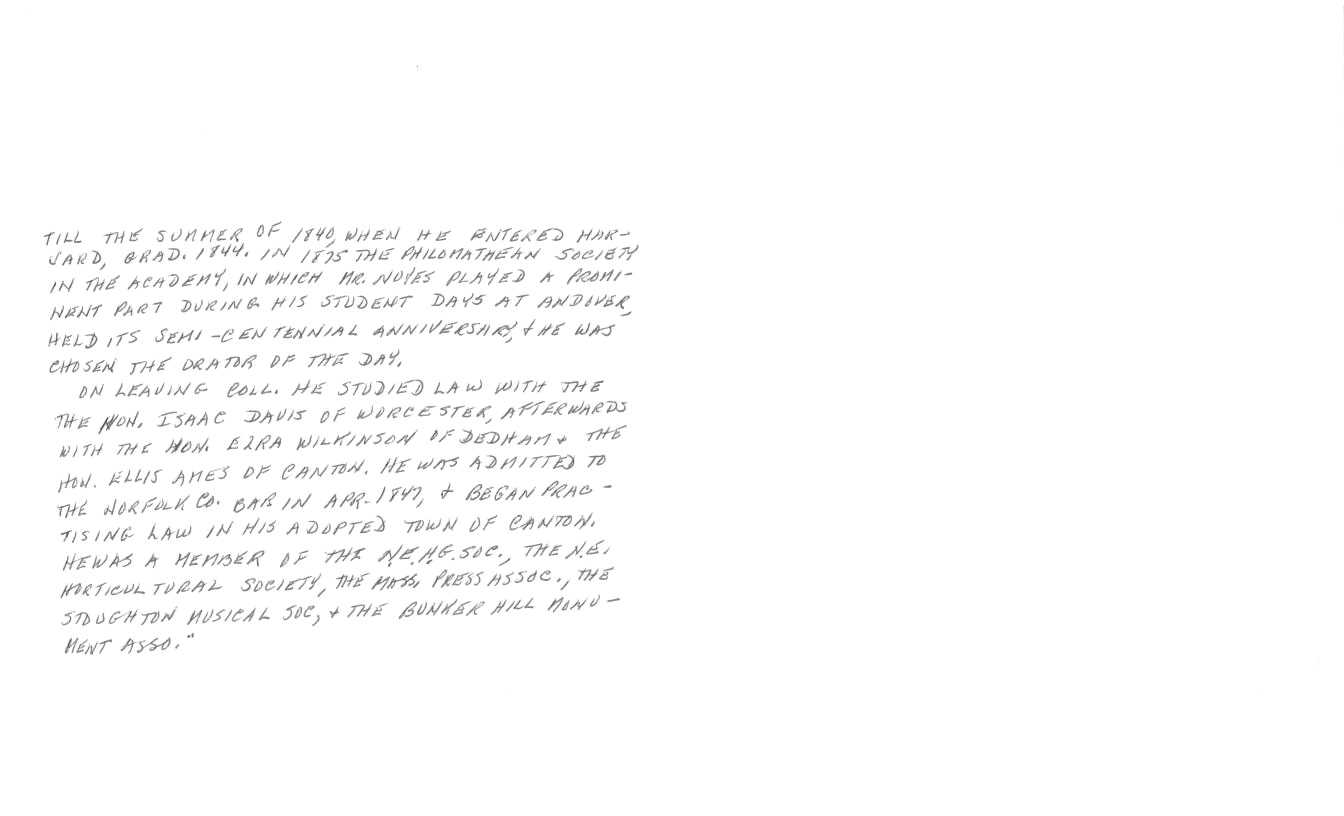 TILL THE SUMMER OF 1840, WHEN HE ENTERED HAR-
VARD, GRAD. 1844. IN 1875 THE PHILOMATHEAN SOCIETY
IN THE ACADEMY, IN WHICH MR. NOYES PLAYED A PROMI-
NENT PART DURING HIS STUDENT DAYS AT ANDOVER,
HELD ITS SEMI-CENTENNIAL ANNIVERSARY, & HE WAS
CHOSEN THE ORATOR OF THE DAY.
ON LEAVING COLL. HE STUDIED LAW WITH THE
THE HON. ISAAC DAVIS OF WORCESTER, AFTERWARDS
WITH THE HON. EZRA WILKINSON OF DEDHAM & THE
HON. ELLIS AMES OF CANTON. HE WAS ADMITTED TO
THE NORFOLK CO. BAR IN APR. 1847, & BEGAN PRAC-
TISING LAW IN HIS ADOPTED TOWN OF CANTON.
HE WAS A MEMBER OF THE N.E.H.G. SOC., THE N.E.
HORTICULTURAL SOCIETY, THE MASS. PRESS ASSOC., THE
STOUGHTON MUSICAL SOC, & THE BUNKER HILL MONU-
MENT ASSO."